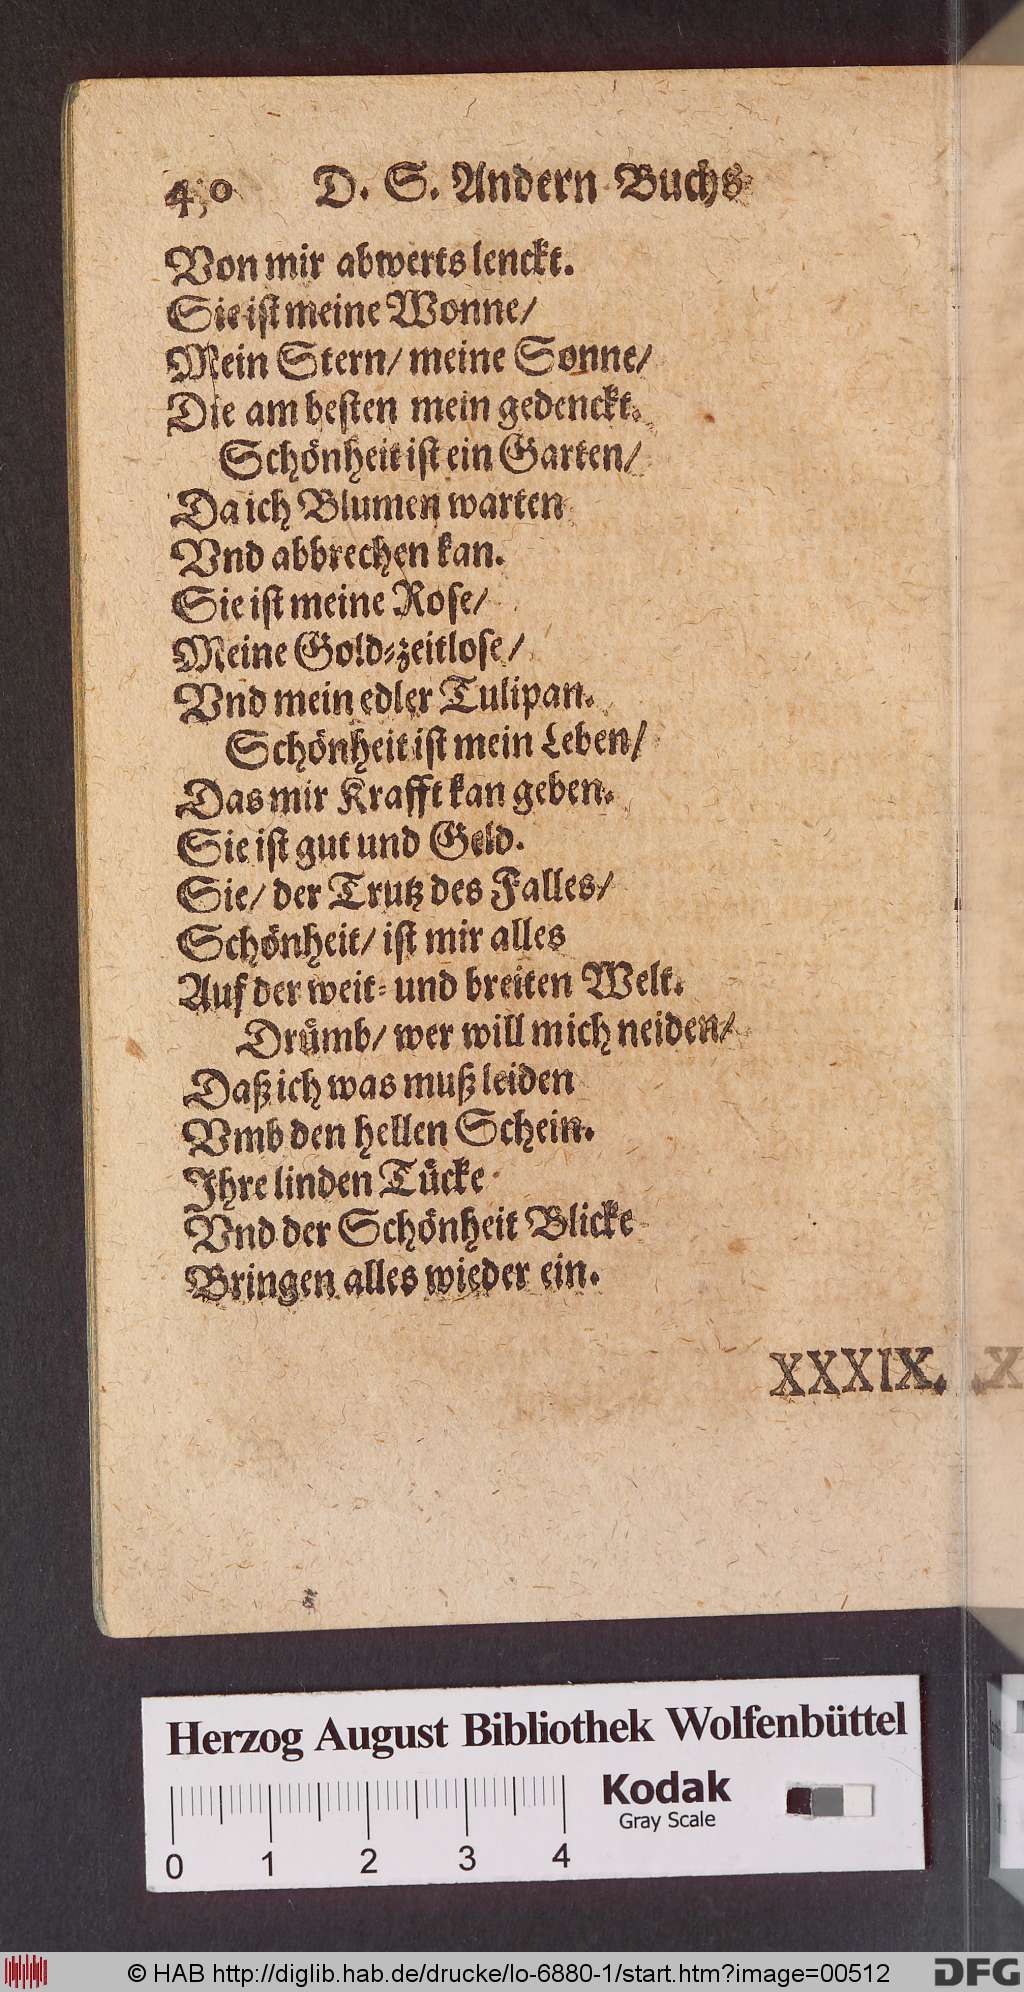 40 D. S. Andern Buchs
Von mir abwerts lenckt.
Sie ist meine Wonne/
Mein Stern/ meine Sonne/
Die am besten mein gedenckt.
Schönheit ist ein Garten/
Da ich Blumen warten
Vnd abbrechen kan.
Sie ist meine Rose/
Meine Gold-zeitlose/
Vnd mein edler Tulipan.
Schönheit ist mein Leben/
Das mir Krafft kan geben.
Sie ist gut und Geld.
Sie/ der Trutz des Falles/
Schönheit/ ist mir alles
Auf der weit- und breiten Welt.
Drümb/ wer will mich neiden/
Daß ich was muß leiden
Vmb den hellen Schein.
Ihre linden Tücke
Vnd der Schönheit Blicke
Bringen alles wieder ein.
XXXIX.
Herzog August Bibliothek Wolfenbüttel
Kodak
Gray Scale
0 1 2 3 4
© HAB http://diglib.hab.de/drucke/lo-6880-1/start.htm?image=00512
DFG